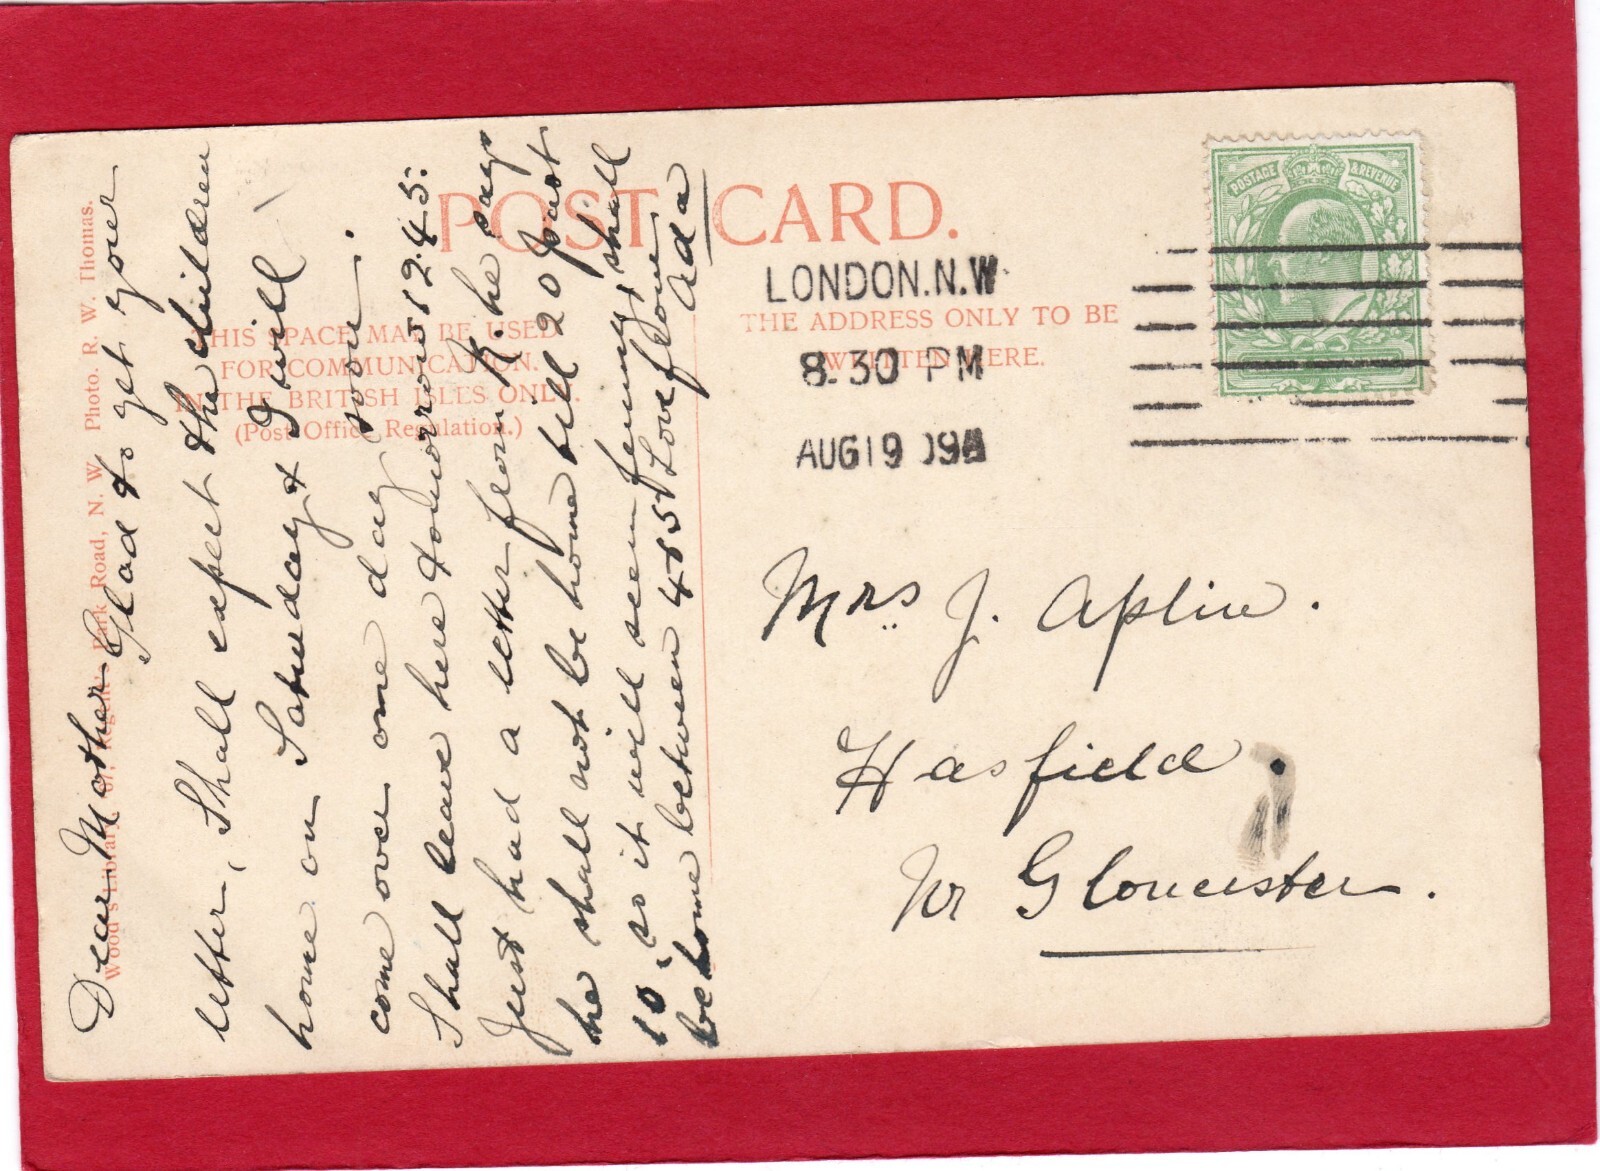 POST CARD.
THIS SPACE MAY BE USED
FOR COMMUNICATION.
IN THE BRITISH ISLES ONLY.
(Post Office Regulation.)
THE ADDRESS ONLY TO BE
WRITTEN HERE.
Wood's Library, Regent's Park Road, N. W. Photo. R. W. Thomas.
POSTAGE & REVENUE
LONDON.N.W
8.30 PM
AUG 19 09
Dear Mother
Glad to get your
letter, Shall expect the children
home on Saturday & I will
come over one day soon.
Shall leave here tomorrow 12.45.
Just had a letter from K. he says
he shall not be home till 20 past
10, so it will seem funny, shall
be home between 4 & 5 Love from
Ada
Mrs J. Aplin.
Hasfield.
Nr Gloucester.